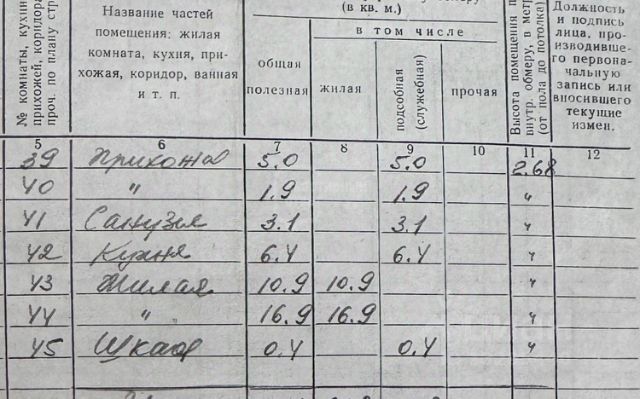 № комнаты, кухни
прихожей, коридора
проч. по плану стр
Название частей
помещения: жилая
комната, кухня, при-
хожая, коридор, ванная
и т. п.
(в кв. м.)
в том числе
общая
полезная
жилая
подсобная
(служебная)
прочая
Высота помещения п
внутр. обмеру, в метр
(от пола до потолка)
Должность
и подпись
лица, про-
изводившего
первона-
чальную
запись или
вносившего
текущие
измен.
5 6 7 8 9 10 11 12
39 Прихожая 5.0 5.0 2.68
40 " 1.9 1.9 "
41 Санузел 3.1 3.1 "
42 Кухня 6.4 6.4 "
43 Жилая 10.9 10.9 "
44 " 16.9 16.9 "
45 Шкаф 0.4 0.4 "